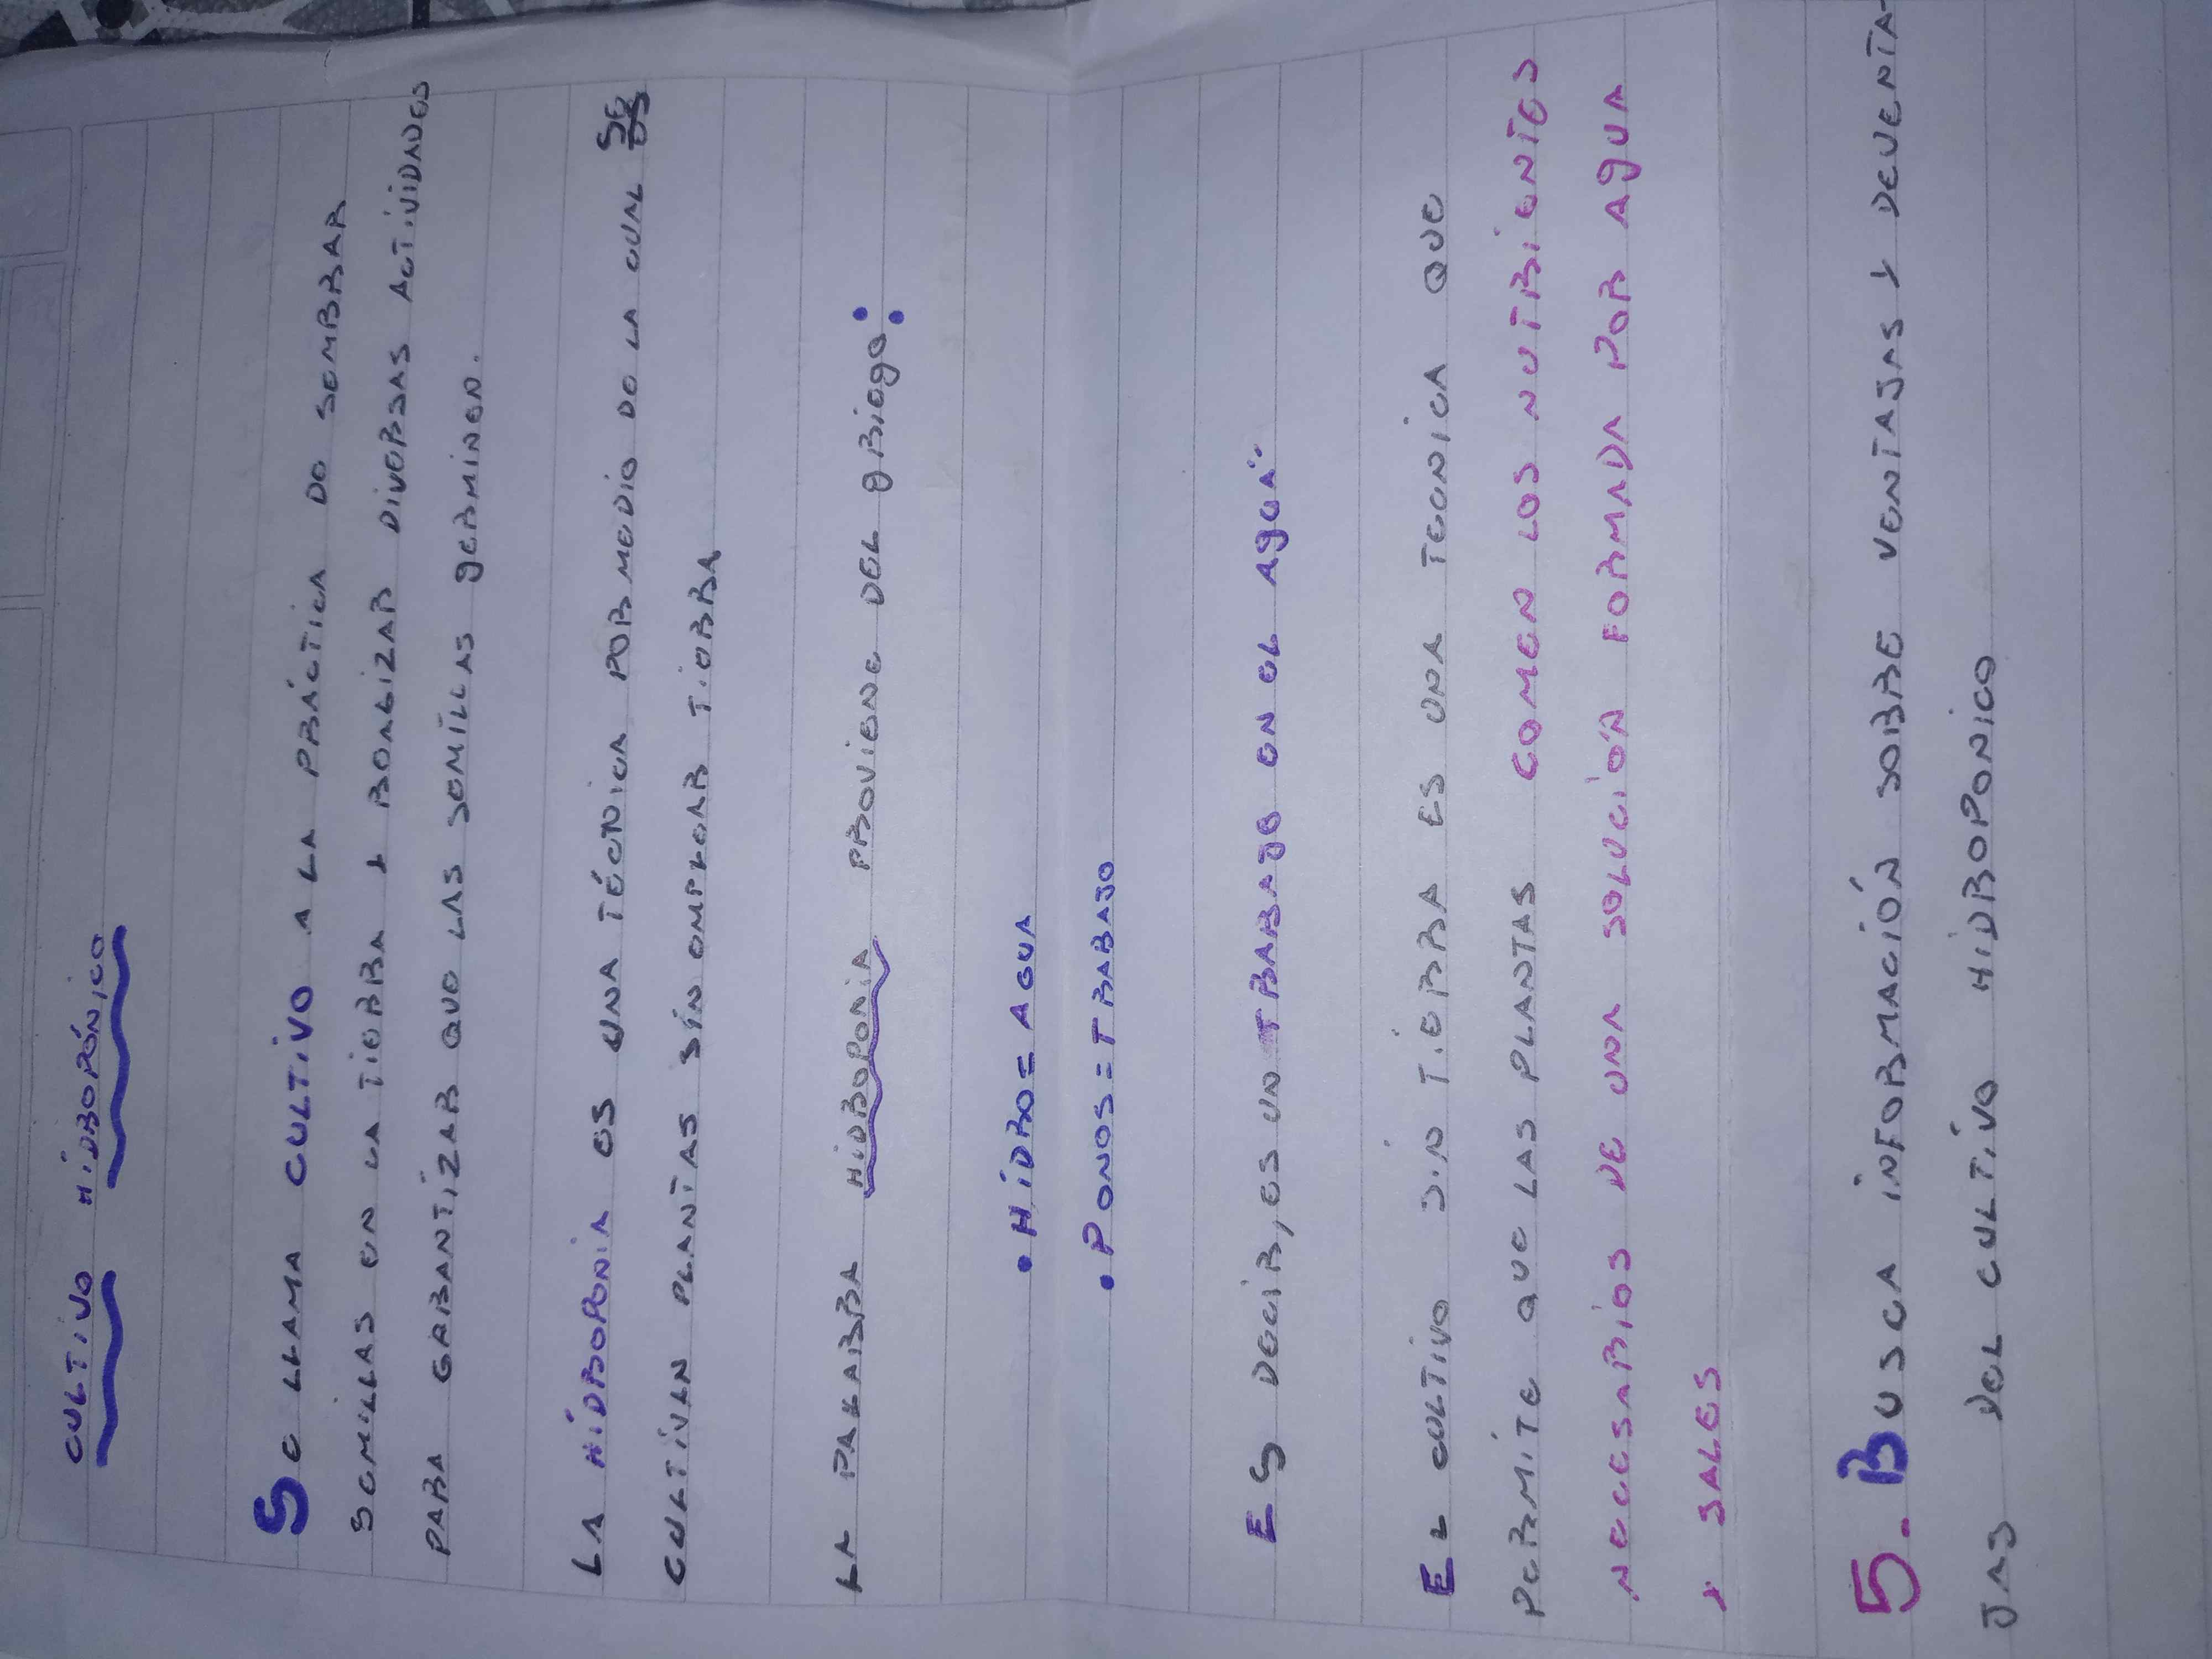 CULTIVO HIDROPÓNICO
SE LLAMA CULTIVO A LA PRÁCTICA DE SEMBRAR
SEMILLAS EN LA TIERRA Y REALIZAR DIVERSAS ACTIVIDADES
PARA GARANTIZAR QUE LAS SEMILLAS GERMINEN.
LA HIDROPONIA ES UNA TÉCNICA POR MEDIO DE LA CUAL SE
CULTIVAN PLANTAS SIN EMPLEAR TIERRA
LA PALABRA HIDROPONIA PROVIENE DEL griego:
• HIDRO = AGUA
• PONOS = TRABAJO
ES DECIR, ES UN TRABAJO EN EL AGUA"
EL CULTIVO SIN TIERRA ES UNA TECNICA QUE
PERMITE QUE LAS PLANTAS COMEN LOS NUTRIENTES
NECESARIOS DE UNA SOLUCIÓN FORMADA POR AGUA
Y SALES
5. BUSCA INFORMACIÓN SOBRE VENTAJAS Y DEVENTA-
JAS DEL CULTIVO HIDROPONICO